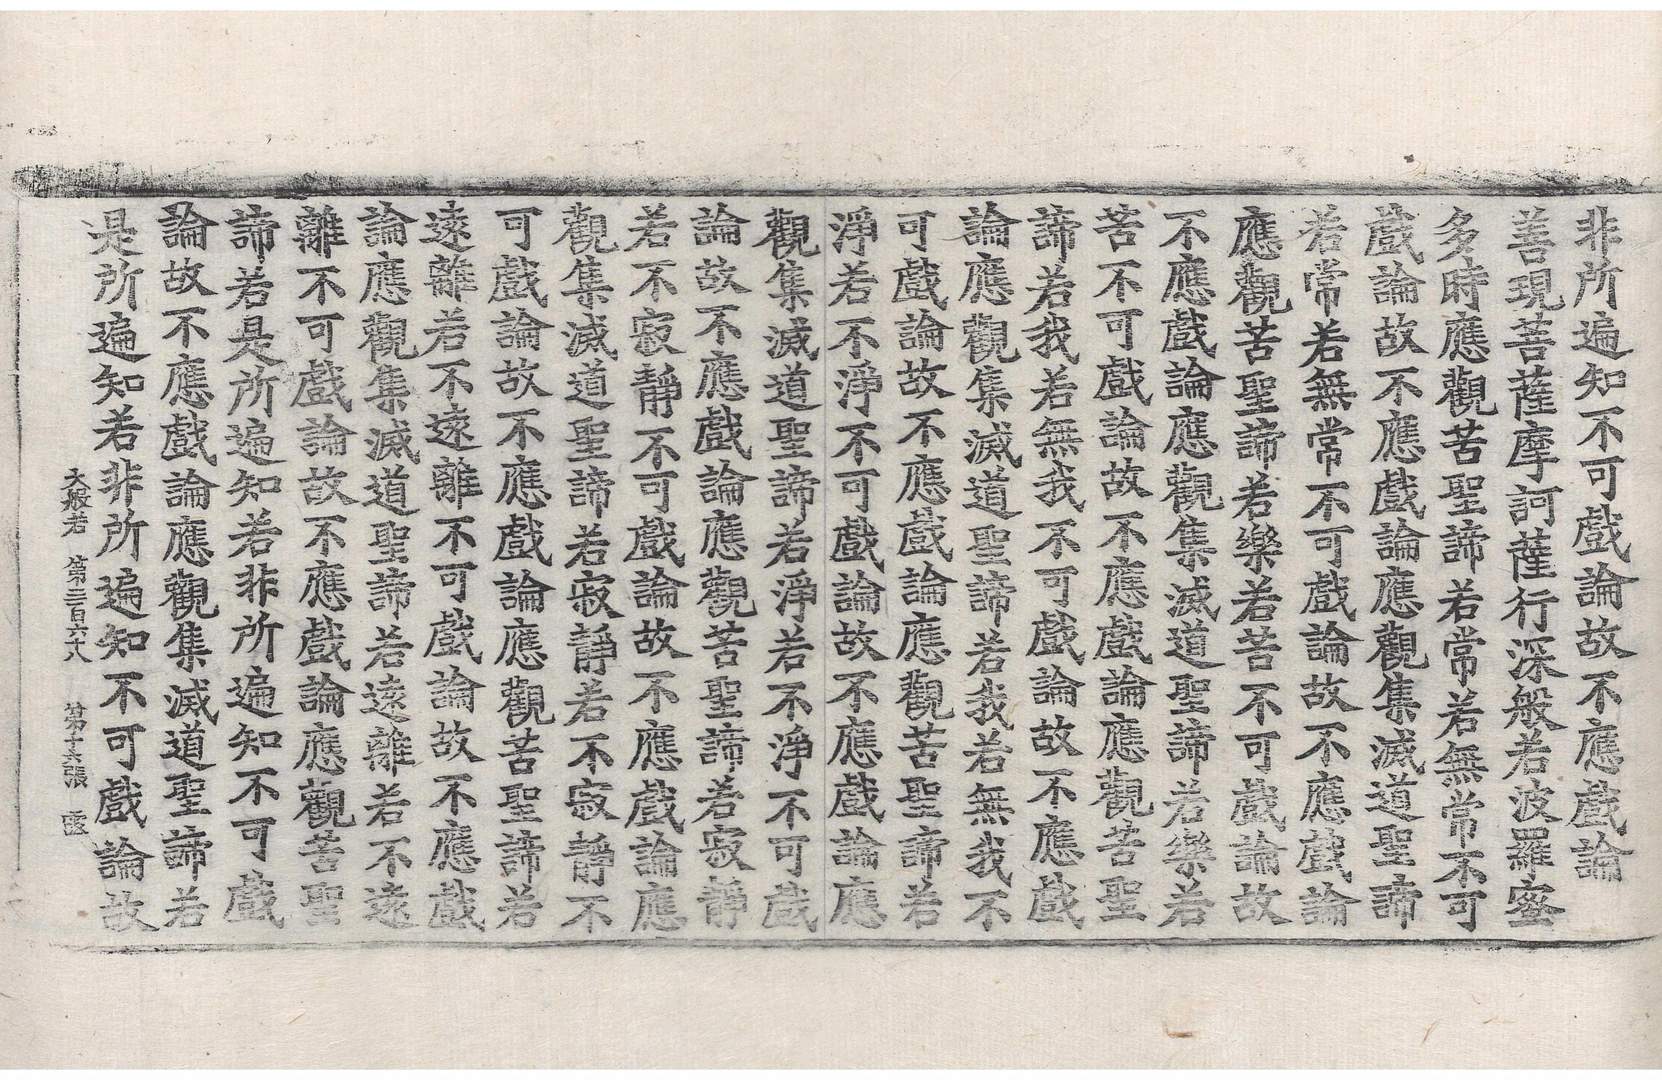 非所遍知不可戲論故不應戲論
善現菩薩摩訶薩行深般若波羅蜜
多時應觀苦聖諦若常若無常不可
戲論故不應戲論應觀集滅道聖諦
若常若無常不可戲論故不應戲論
應觀苦聖諦若樂若苦不可戲論故
不應戲論應觀集滅道聖諦若樂若
苦不可戲論故不應戲論應觀苦聖
諦若我若無我不可戲論故不應戲
論應觀集滅道聖諦若我若無我不
可戲論故不應戲論應觀苦聖諦若
淨若不淨不可戲論故不應戲論應
觀集滅道聖諦若淨若不淨不可戲
論故不應戲論應觀苦聖諦若寂靜
若不寂靜不可戲論故不應戲論應
觀集滅道聖諦若寂靜若不寂靜不
可戲論故不應戲論應觀苦聖諦若
遠離若不遠離不可戲論故不應戲
論應觀集滅道聖諦若遠離若不遠
離不可戲論故不應戲論應觀苦聖
諦若是所遍知若非所遍知不可戲
論故不應戲論應觀集滅道聖諦若
是所遍知若非所遍知不可戲論故
大般若 第三百六十八 第十六張